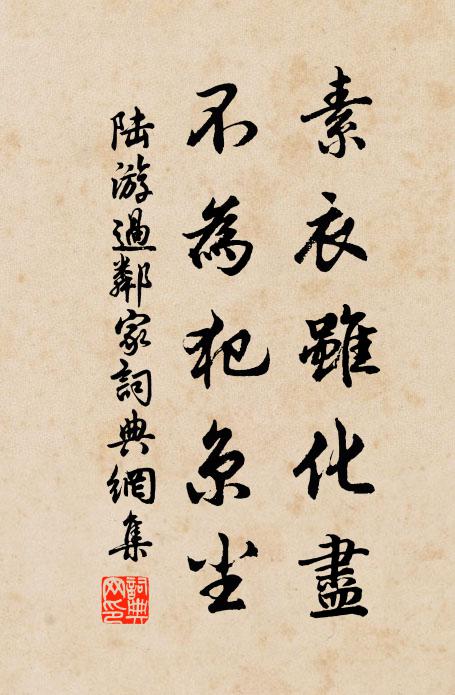 素衣雖化盡
不為犯京尘
陆游過鄰家詞典網集
詞典网印